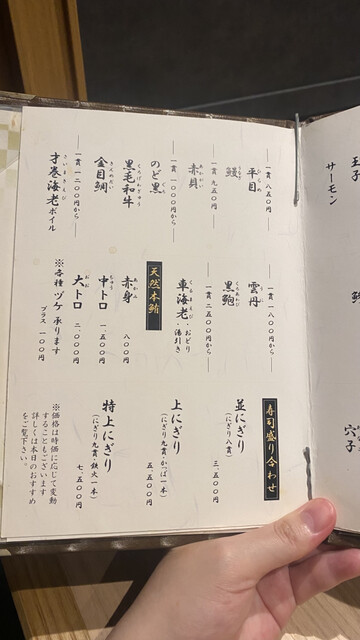 サーモン
穴子
一貫 八五〇円
平目
ひらめ
鰻
うなぎ
一貫 九五〇円
赤貝
あかがい
一貫 一〇〇〇円から
のど黒
くろ
黒毛和牛
くろげわぎゅう
金目鯛
きんめだい
一貫 一二〇〇円から
才巻海老ボイル
さいまきえび
一貫 一八〇〇円から
雲丹
うに
黒鮑
くろあわび
一貫 二五〇〇円から
車海老・おどり・湯引き
くるまえび
天然本鮪
赤身 八〇〇円
あかみ
中トロ 一、五〇〇円
ちゅう
大トロ 二、〇〇〇円
おお
※各種 ヅケ 承ります
プラス 一〇〇円
寿司盛り合わせ
並にぎり
(にぎり八貫)
三、五〇〇円
上にぎり
(にぎり九貫・かっぱ一本)
五、五〇〇円
特上にぎり
(にぎり九貫・鉄火一本)
七、五〇〇円
※価格は時価に応じて変動
することもございます
詳しくは本日のおすすめ
をご覧下さい。